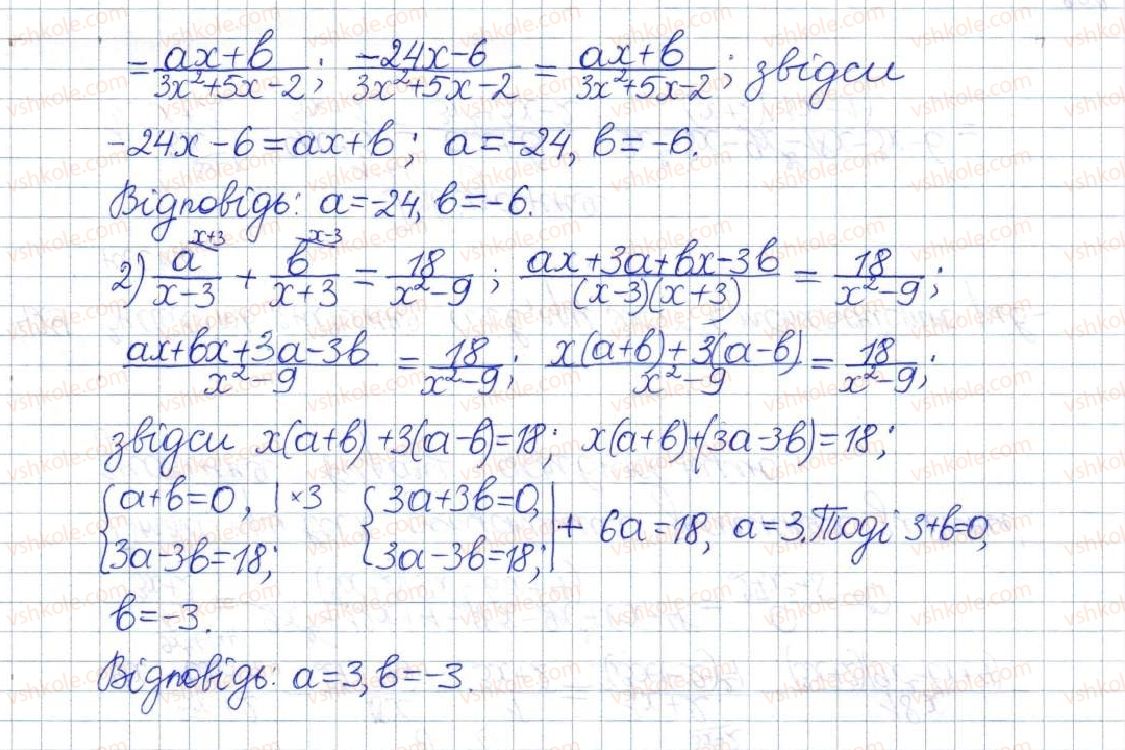 = (ax+b)/(3x²+5x-2); (-24x-6)/(3x²+5x-2) = (ax+b)/(3x²+5x-2); звідси
-24x-6=ax+b; a=-24, b=-6.
Відповідь: a=-24, b=-6.
2) a/(x-3) ^(x+3) + b/(x+3) ^(x-3) = 18/(x²-9); (ax+3a+bx-3b)/((x-3)(x+3)) = 18/(x²-9);
(ax+bx+3a-3b)/(x²-9) = 18/(x²-9); (x(a+b)+3(a-b))/(x²-9) = 18/(x²-9);
звідси x(a+b)+3(a-b)=18; x(a+b)+(3a-3b)=18;
{a+b=0, |×3 {3a+3b=0,
{3a-3b=18; {3a-3b=18; | + 6a=18, a=3. Тоді 3+b=0,
b=-3.
Відповідь: a=3, b=-3.
vshkole.com